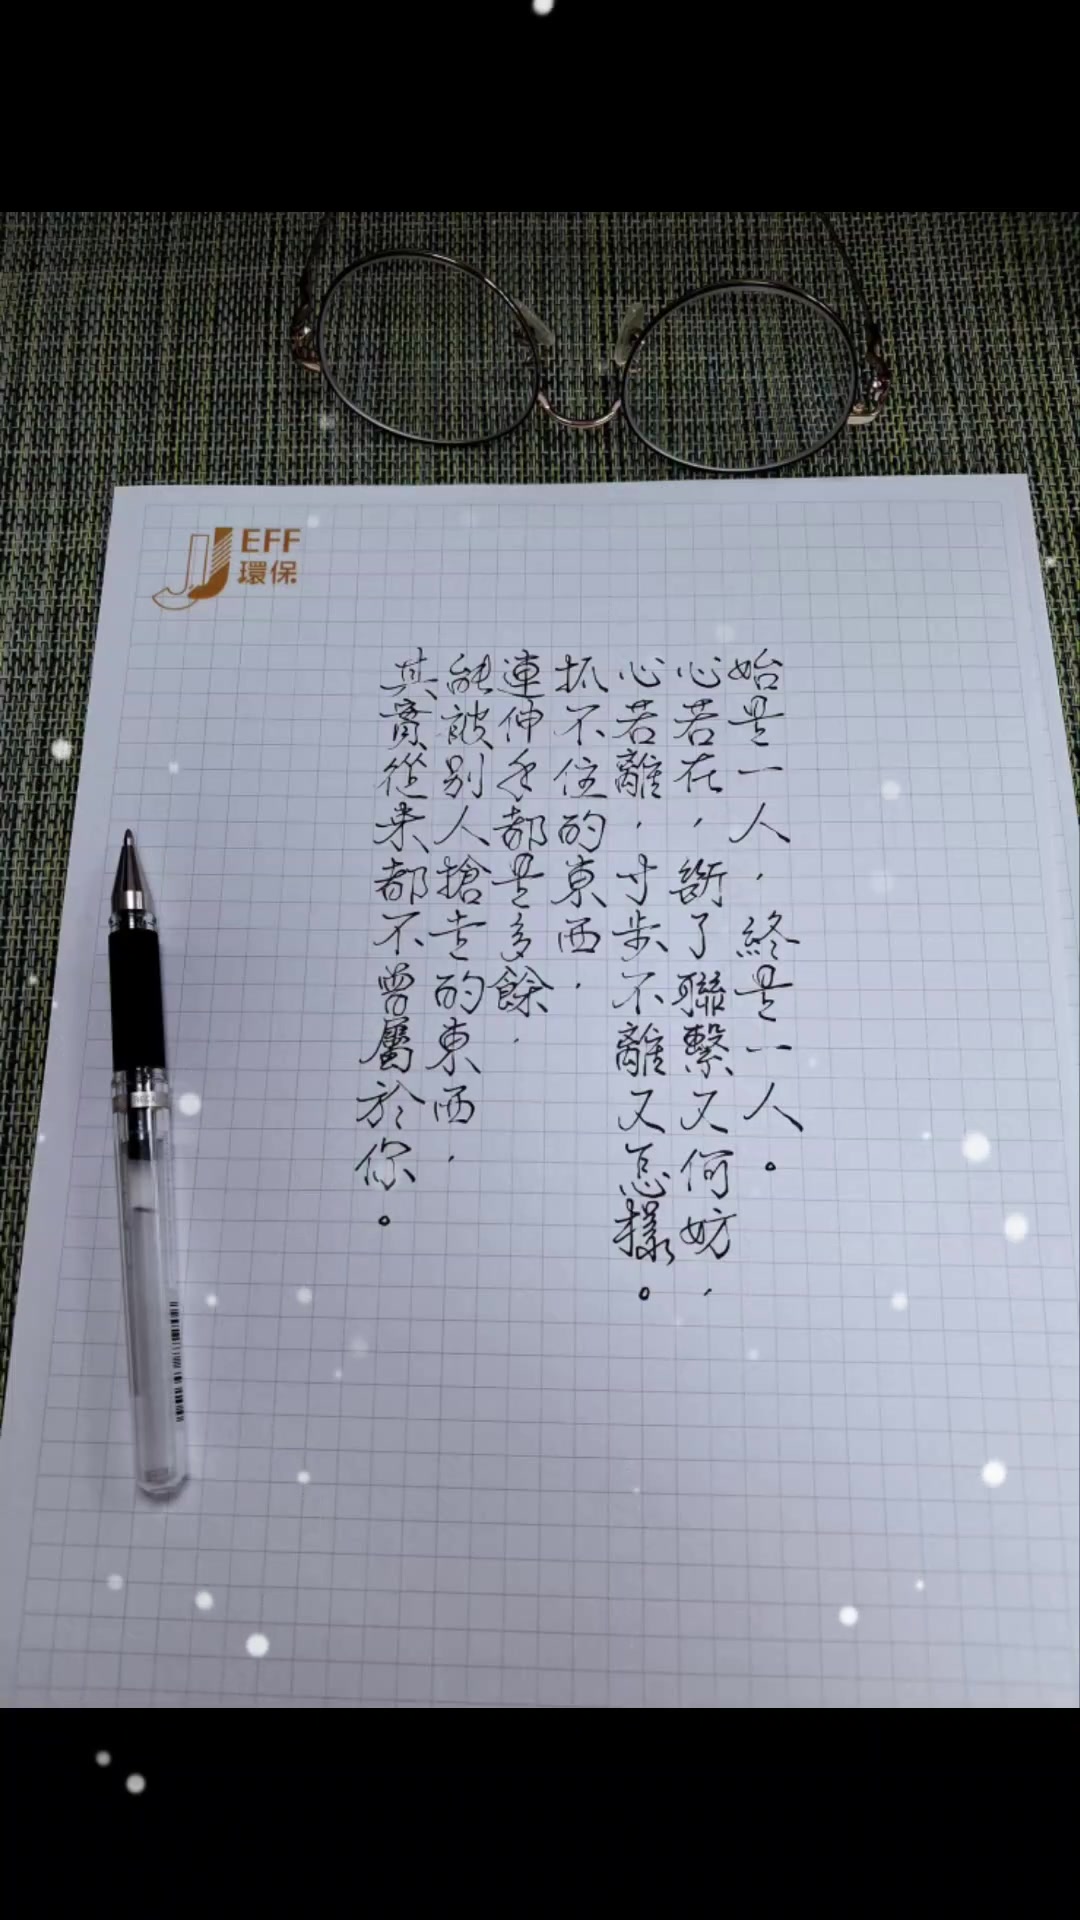 JEFF
環保
始是一人，終是一人。
心若在，斷了聯繫又何妨，
心若離，寸步不離又怎樣。
抓不住的東西，
連伸手都是多餘，
能被別人搶走的東西，
其實從來都不曾屬於你。